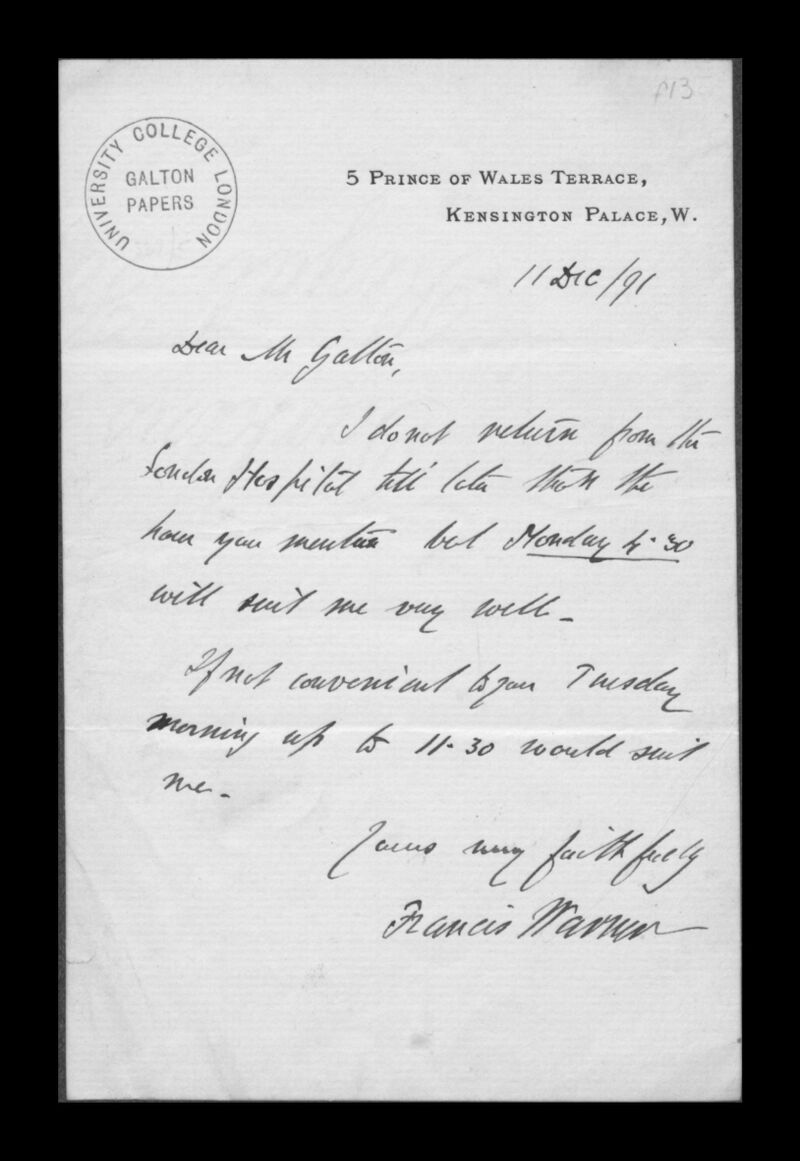 f13
UNIVERSITY COLLEGE LONDON
GALTON
PAPERS
5 PRINCE OF WALES TERRACE,
KENSINGTON PALACE, W.
11 Dec/91
Dear Mr Galton,
I do not return from the
London Hospital till later than the
hour you mention but Monday 4.30
will suit me very well -
If not convenient to you Tuesday
morning up to 11.30 would suit
me -
Yours very faithfully
Francis Warner